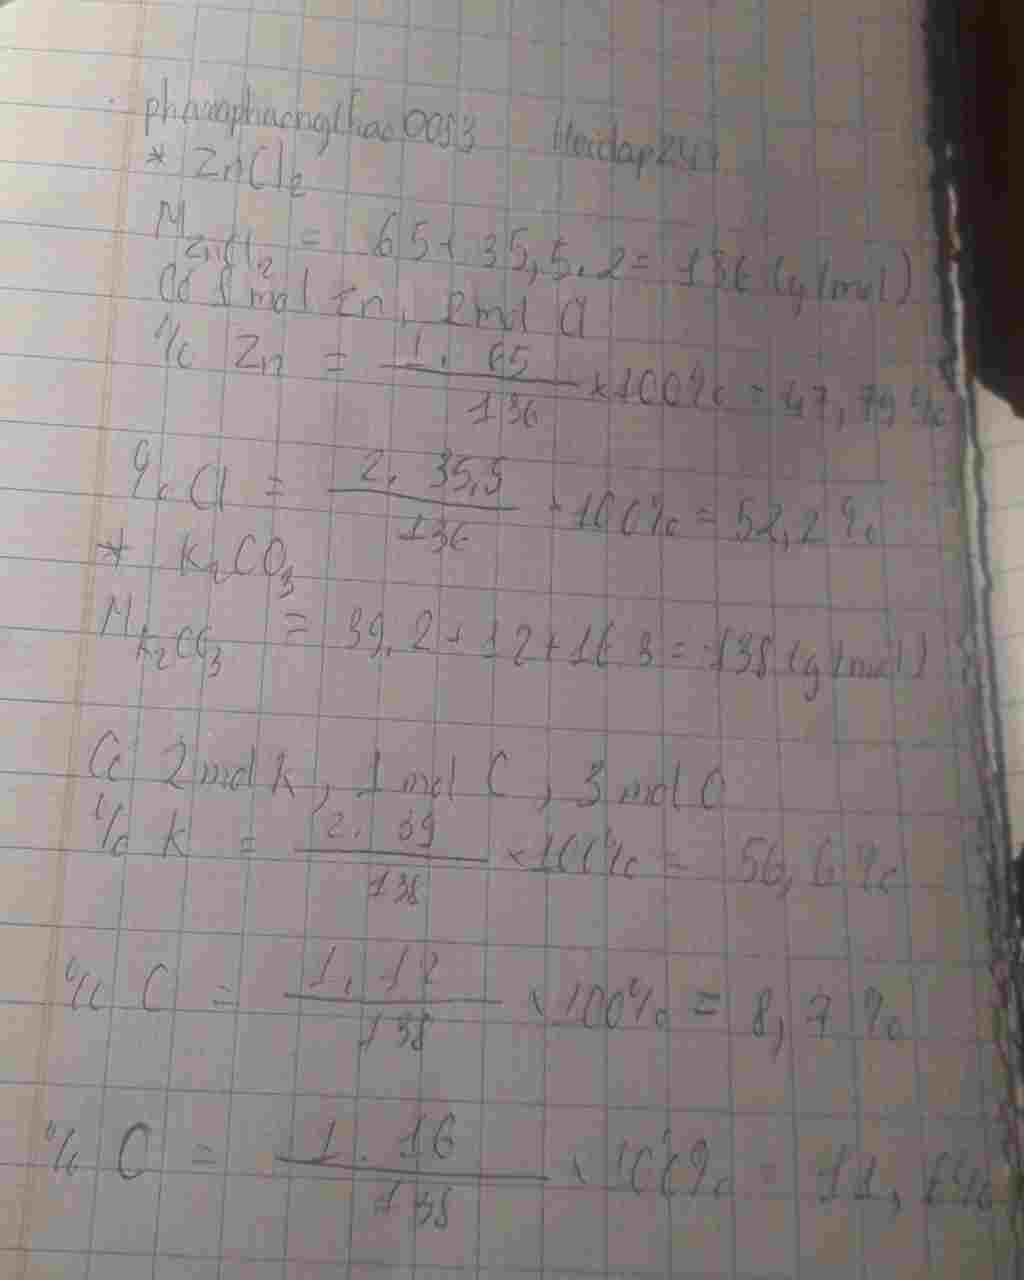 phamphuongthao0053 Hoidap247
* ZnCl2
M ZnCl2 = 65+35,5.2 = 136 (g/mol)
Có 1 mol Zn, 2 mol Cl
% Zn = 1.65/136 ×100% = 47,79%
% Cl = 2.35,5/136 .100% = 52,2%
* K2CO3
M K2CO3 = 39.2+12+16.3 = 138 (g/mol)
Có 2 mol K, 1 mol C, 3 mol O
% K = 2.39/138 ×100% = 56,6%
% C = 1.12/138 ×100% = 8,7%
% O = 1.16/138 ×100% = 11,